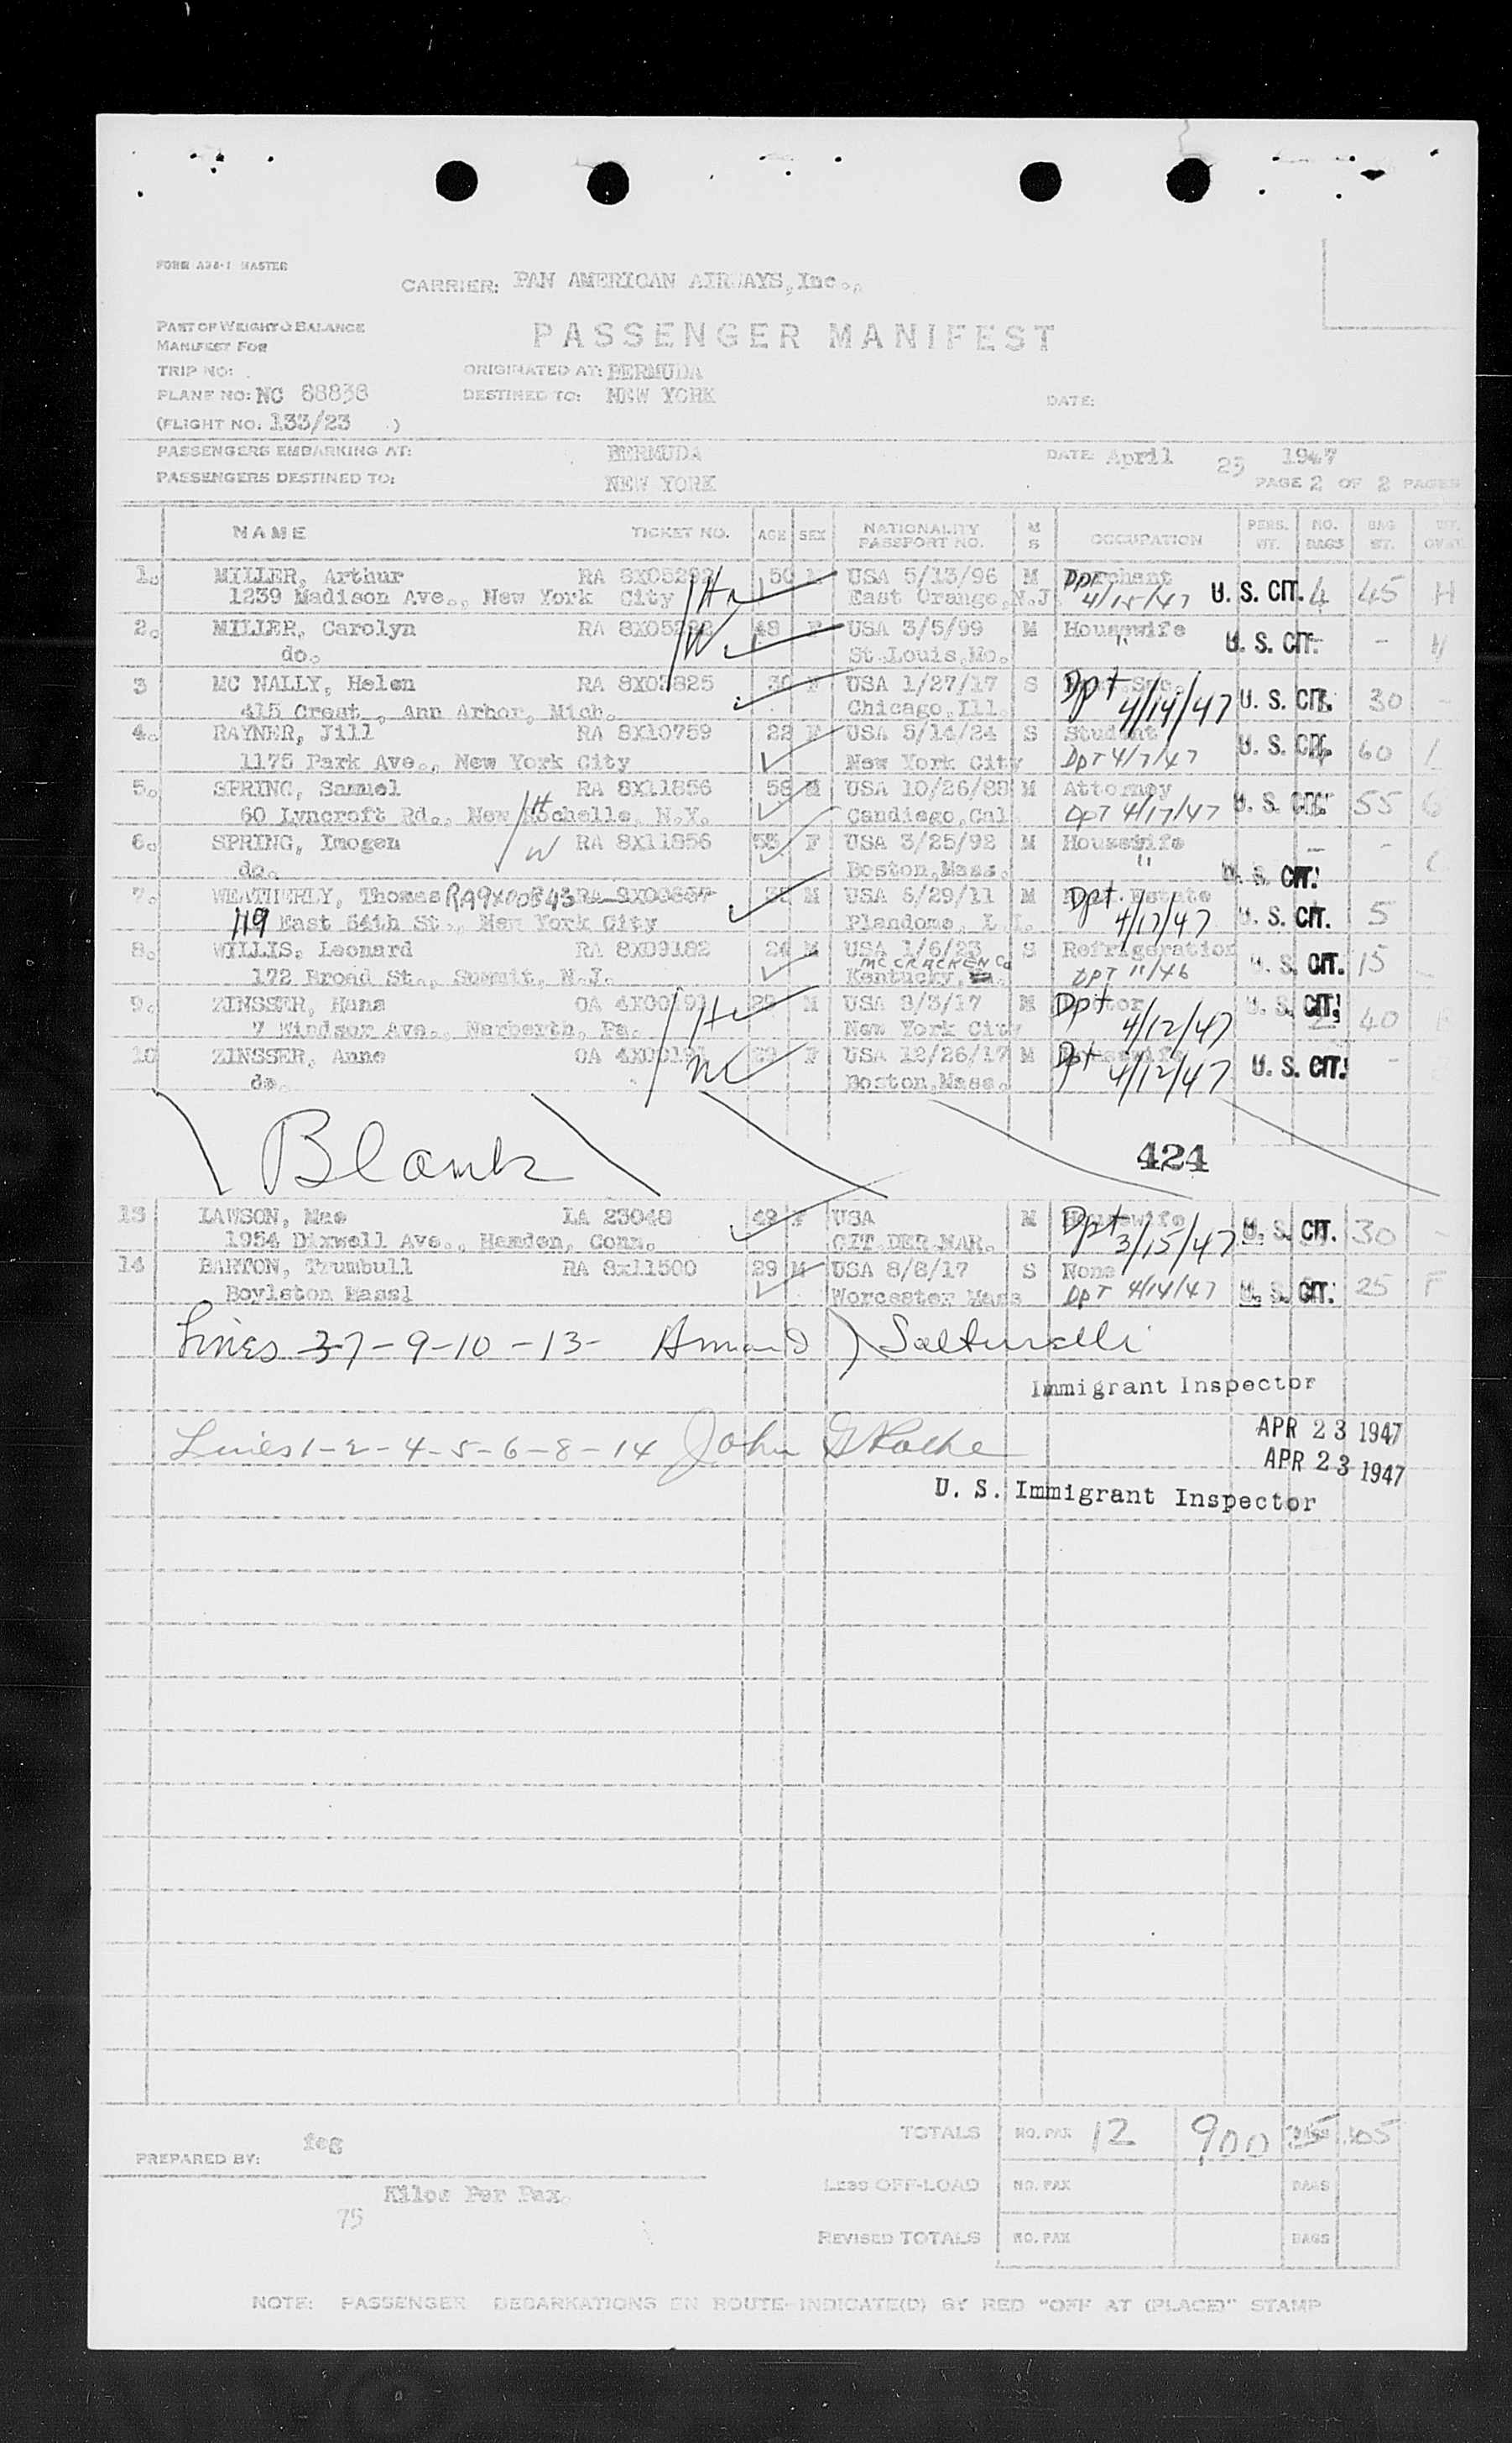 FORM A34-1 MASTER
CARRIER: PAN AMERICAN AIRWAYS, Inc.,
PART OF WEIGHT & BALANCE
MANIFEST FOR
PASSENGER MANIFEST
TRIP NO:
ORIGINATED AT: BERMUDA
PLANE NO: NC 88838
DESTINED TO: NEW YORK
DATE:
(FLIGHT NO: 133/23 )
PASSENGERS EMBARKING AT: BERMUDA DATE April 23 1947
PASSENGERS DESTINED TO: NEW YORK PAGE 2 OF 2 PAGES
NAME TICKET NO. AGE SEX NATIONALITY PASSPORT NO. M S OCCUPATION PERS. WT. NO. BAGS BAG WT.
1. MILLER, Arthur RA 8X05292 50 M USA 5/13/96 M Merchant U. S. CIT. 4 45 H
1239 Madison Ave., New York City H East Orange, N.J. Dpt 4/15/47
2. MILLER, Carolyn RA 8X05292 48 F USA 3/5/99 M Housewife U. S. CIT. - - H
do. W St.Louis,Mo. "
3 MC NALLY, Helen RA 8X03825 30 F USA 1/27/17 S Sec. U. S. CIT. 30 -
415 Crest , Ann Arbor, Mich. Chicago,Ill. Dpt 4/14/47
4. RAYNER, Jill RA 8X10759 22 F USA 5/14/24 S Student U. S. CIT. 60 L
1175 Park Ave., New York City New York City DPT 4/7/47
5. SPRING, Samuel RA 8X11856 58 M USA 10/26/88 M Attorney U. S. CIT. 55 G
60 Lyncroft Rd., New Rochelle, N.Y. H Candiego,Cal. DPT 4/17/47
6. SPRING, Imogen W RA 8X11856 55 F USA 3/25/92 M Housewife - -
do. Boston,Mass. " U. S. CIT.
7. WEATHERLY, Thomas RA9X00843 M USA 6/29/11 M Estate
119 East 54th St., New York City Plandome, L.I. Dpt. 4/17/47 U. S. CIT. 5
8. WILLIS, Leonard RA 8X09182 24 M USA 1/6/23 S Refrigeration U. S. CIT. 15 -
172 Broad St., Summit, N.J. Kentucky, MC CRACKEN Co DPT 11/46
9. ZINSSER, Hans OA 4X00191 29 M USA 3/3/17 M Dpt U. S. CIT. 40
7 Windsor Ave., Narberth, Pa. H New York City 4/12/47
10 ZINSSER, Anne OA 4X00191 29 F USA 12/26/17 M Housewife U. S. CIT. -
do. W Boston,Mass. Dpt 4/12/47
Blank
424
13 LAWSON, Mae LA 23048 49 F USA M Housewife U. S. CIT. 30 -
1954 Dixwell Ave., Hamden, Conn. CIT.DER.MAR. Dpt 3/15/47
14 BARTON, Trumbull RA 8x11500 29 M USA 8/8/17 S None U. S. CIT. 25 F
Boylston Massl Worcester Mass DPT 4/14/47
Lines 3-7-9-10-13- Armand J Salturelli
Immigrant Inspector
APR 23 1947
Lines 1-2-4-5-6-8-14 John G Roche
APR 23 1947
U. S. Immigrant Inspector
TOTALS NO. PAX 12 900 BAGS 305
PREPARED BY: feg
LESS OFF-LOAD NO. PAX BAGS
Kilos Per Pax.
75
REVISED TOTALS NO. PAX BAGS
NOTE: PASSENGER DEBARKATIONS EN ROUTE INDICATE(D) BY RED "OFF AT (PLACE)" STAMP